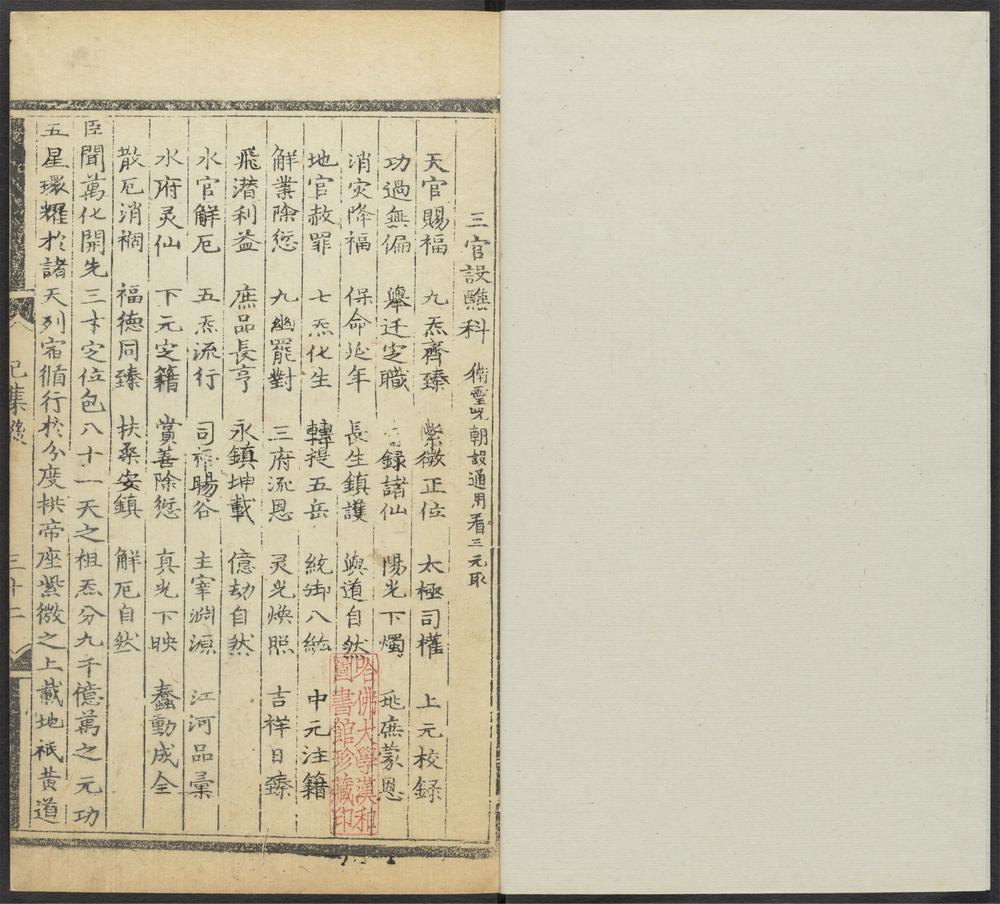 三官設醮科 衛靈咒朝設通用看三元取
天官賜福 九炁齊臻 紫微正位 太極司權 上元校録
功過無偏 舉迁定職 録諸仙 陽光下燭 甿庶蒙恩
消灾降福 保命延年 長生鎮護 與道自然
地官赦罪 七炁化生 轉提五岳 統御八紘 中元注籍
解業除愆 九幽罷對 三府流恩 灵光煥照 吉祥日臻
飛潜利益 庶品長亨 永鎮坤載 億劫自然
水官解厄 五炁流行 司 暘谷 主宰渊源 江河品彙
水府灵仙 下元定籍 賞善除愆 真光下映 蠢動成全
散厄消禍 福德同臻 扶桑安鎮 解厄自然
臣聞萬化開先三才定位包八十一天之祖炁分九千億萬之元功
五星環耀於諸天列宿循行於分度拱帝座紫微之上戴地祇黄道
集 三十二
哈佛大學漢和
圖書館珍藏印